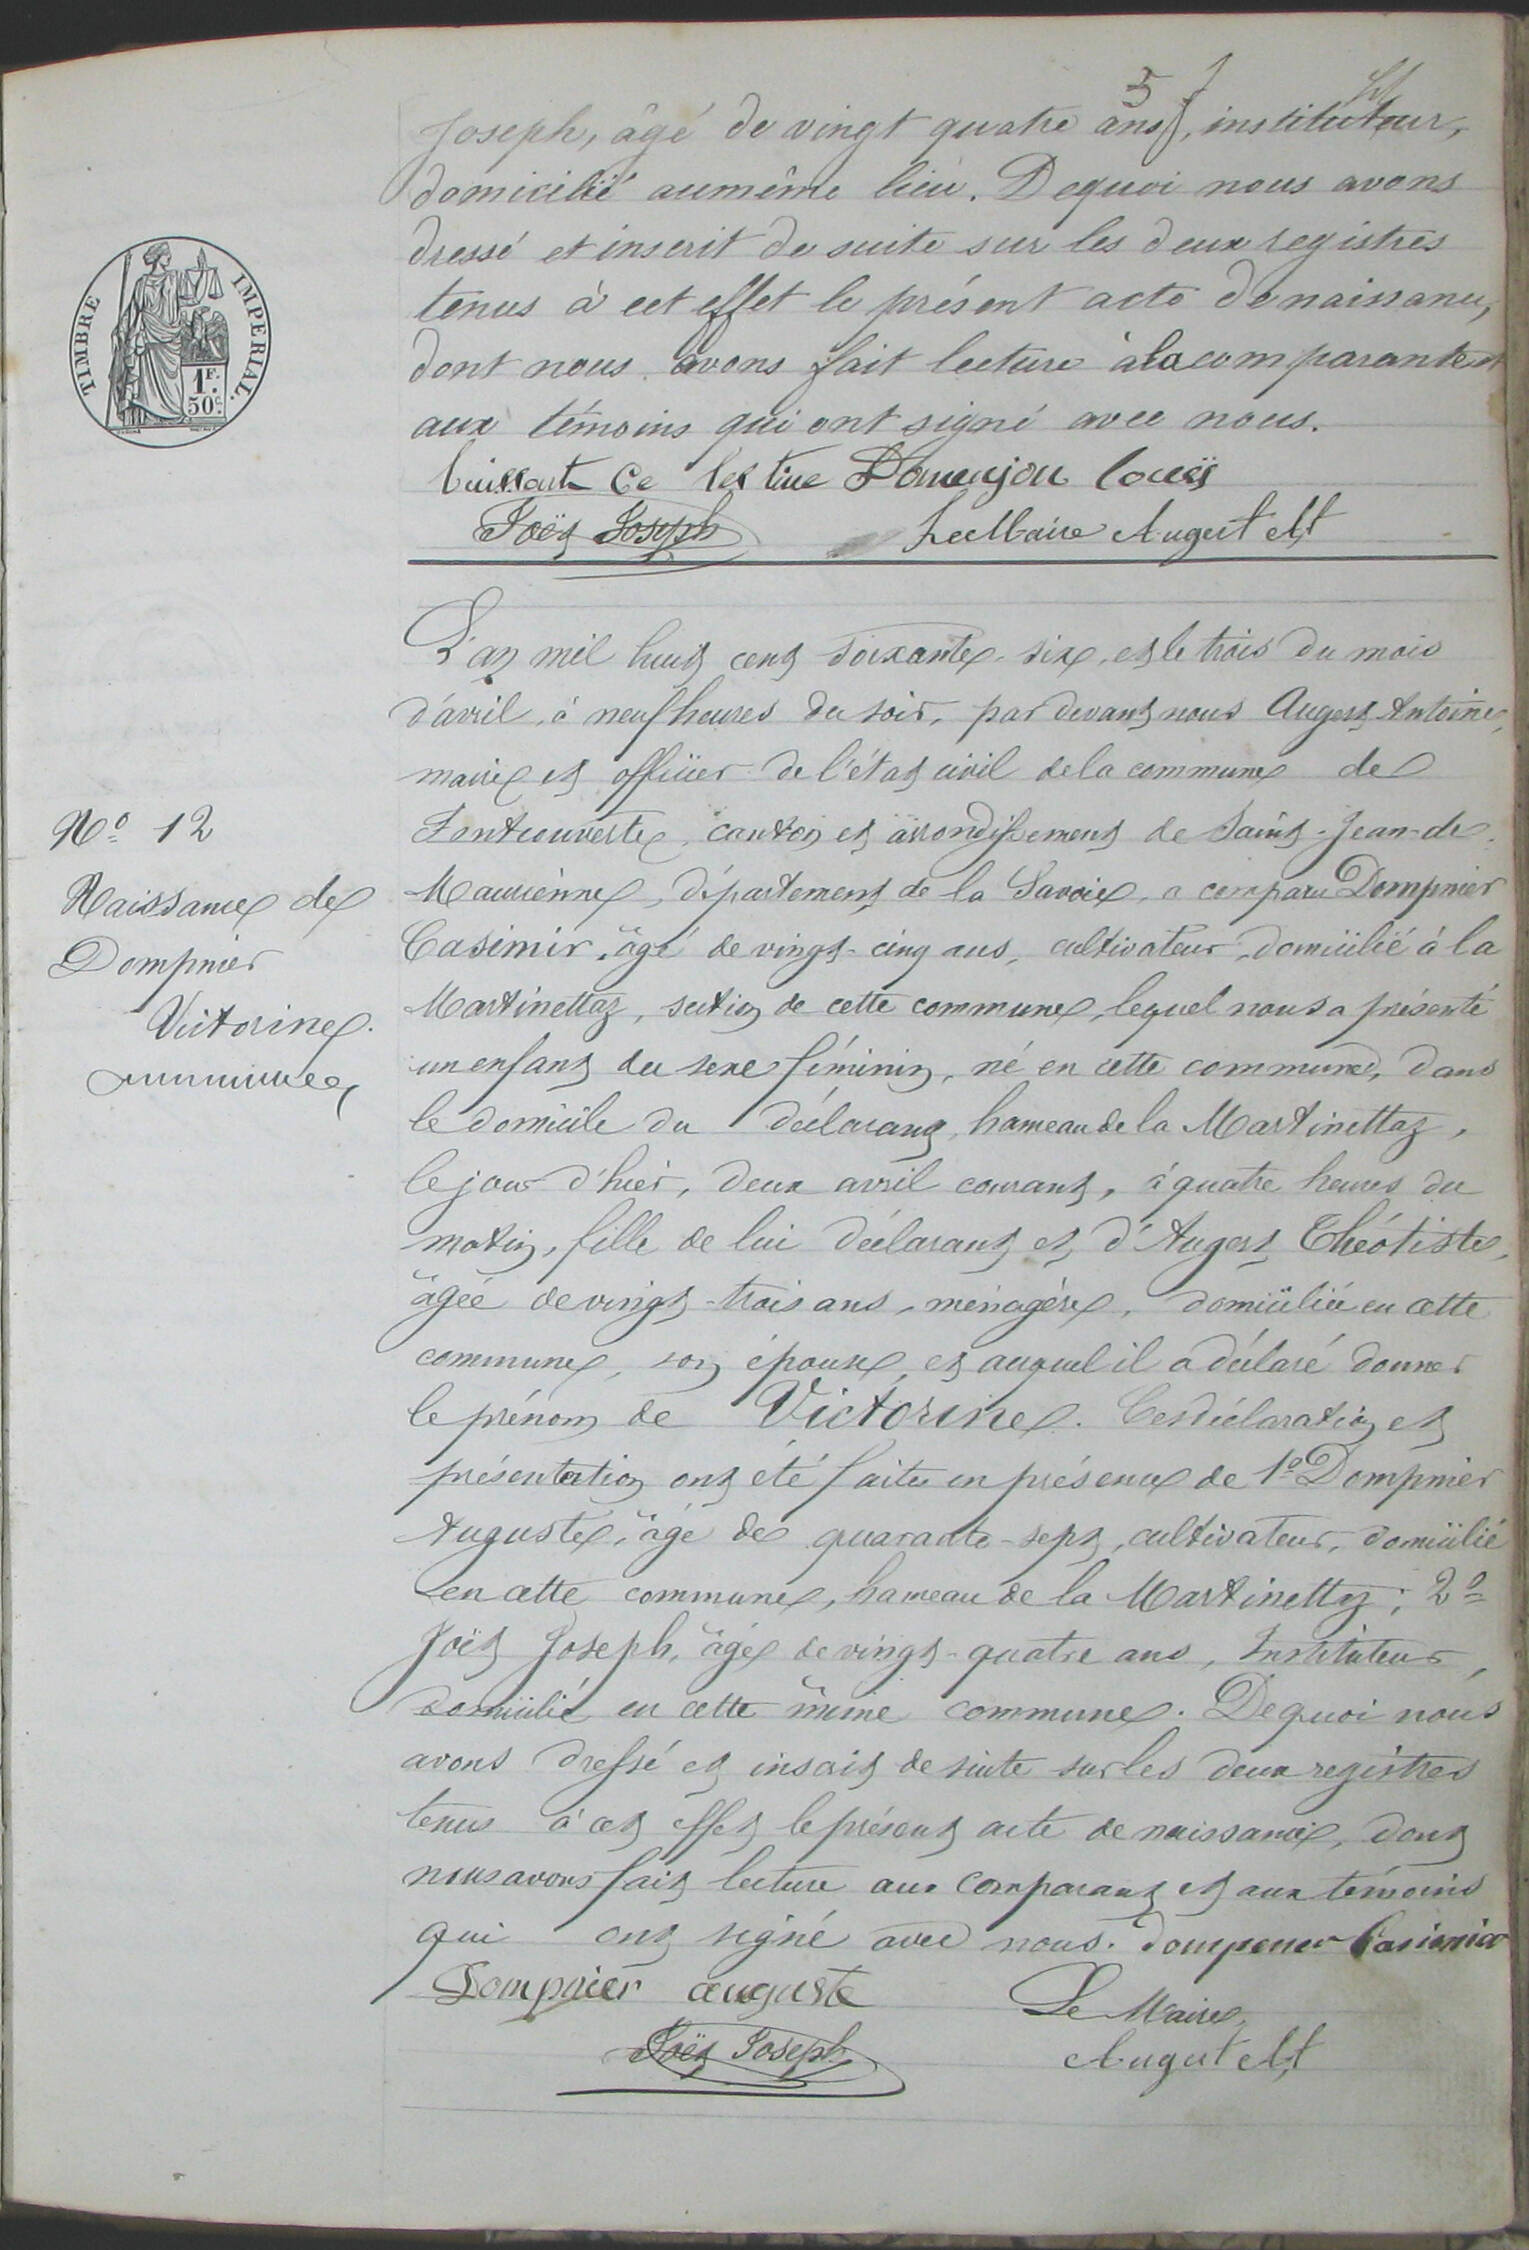 5
Joseph, âgé de vingt quatre ans, instituteur,
domicilié au même lieu. De quoi nous avons
dressé et inscrit de suite sur les deux registres
tenus à cet effet le présent acte de naissance,
dont nous avons fait lecture à la comparante et
aux témoins qui ont signé avec nous.
Cuissart Celestine Domenjon Louis
Joët Joseph Le Maire Augert At
TIMBRE IMPERIAL.
1F.
50c.
L'an mil huit cent soixante-six, et le trois du mois
d'avril, à neuf heures du soir, par devant nous Augert Antoine,
maire et officier de l'état civil de la commune de
Fontcouverte, canton et arrondissement de Saint-Jean-de
Maurienne, département de la Savoie, a comparu Dompnier
Casimir, âgé de vingt-cinq ans, cultivateur, domicilié à la
Martinettaz, section de cette commune, lequel nous a présenté
un enfant du sexe féminin, né en cette commune, dans
le domicile du déclarant, hameau de la Martinettaz,
le jour d'hier, deux avril courant, à quatre heures du
matin, fille de lui déclarant et d'Augert Théotiste,
âgée de vingt-trois ans, ménagère, domiciliée en cette
commune, son épouse, et auquel il a déclaré donner
le prénom de Victorine. Ces déclaration et
présentation ont été faites en présence de 1º Dompnier
Auguste, âgé de quarante-sept, cultivateur, domicilié
en cette commune, hameau de la Martinettaz; 2º
Joët Joseph, âgé de vingt-quatre ans, Instituteur,
domicilié en cette même commune. De quoi nous
avons dressé et inscrit de suite sur les deux registres
tenus à cet effet le présent acte de naissance, dont
nous avons fait lecture aux comparant et aux témoins
qui ont signé avec nous. Dompnier Casimir
Dompnier auguste Le Maire,
Joët Joseph Augert At
Nº 12
Naissance de
Dompnier
Victorine.